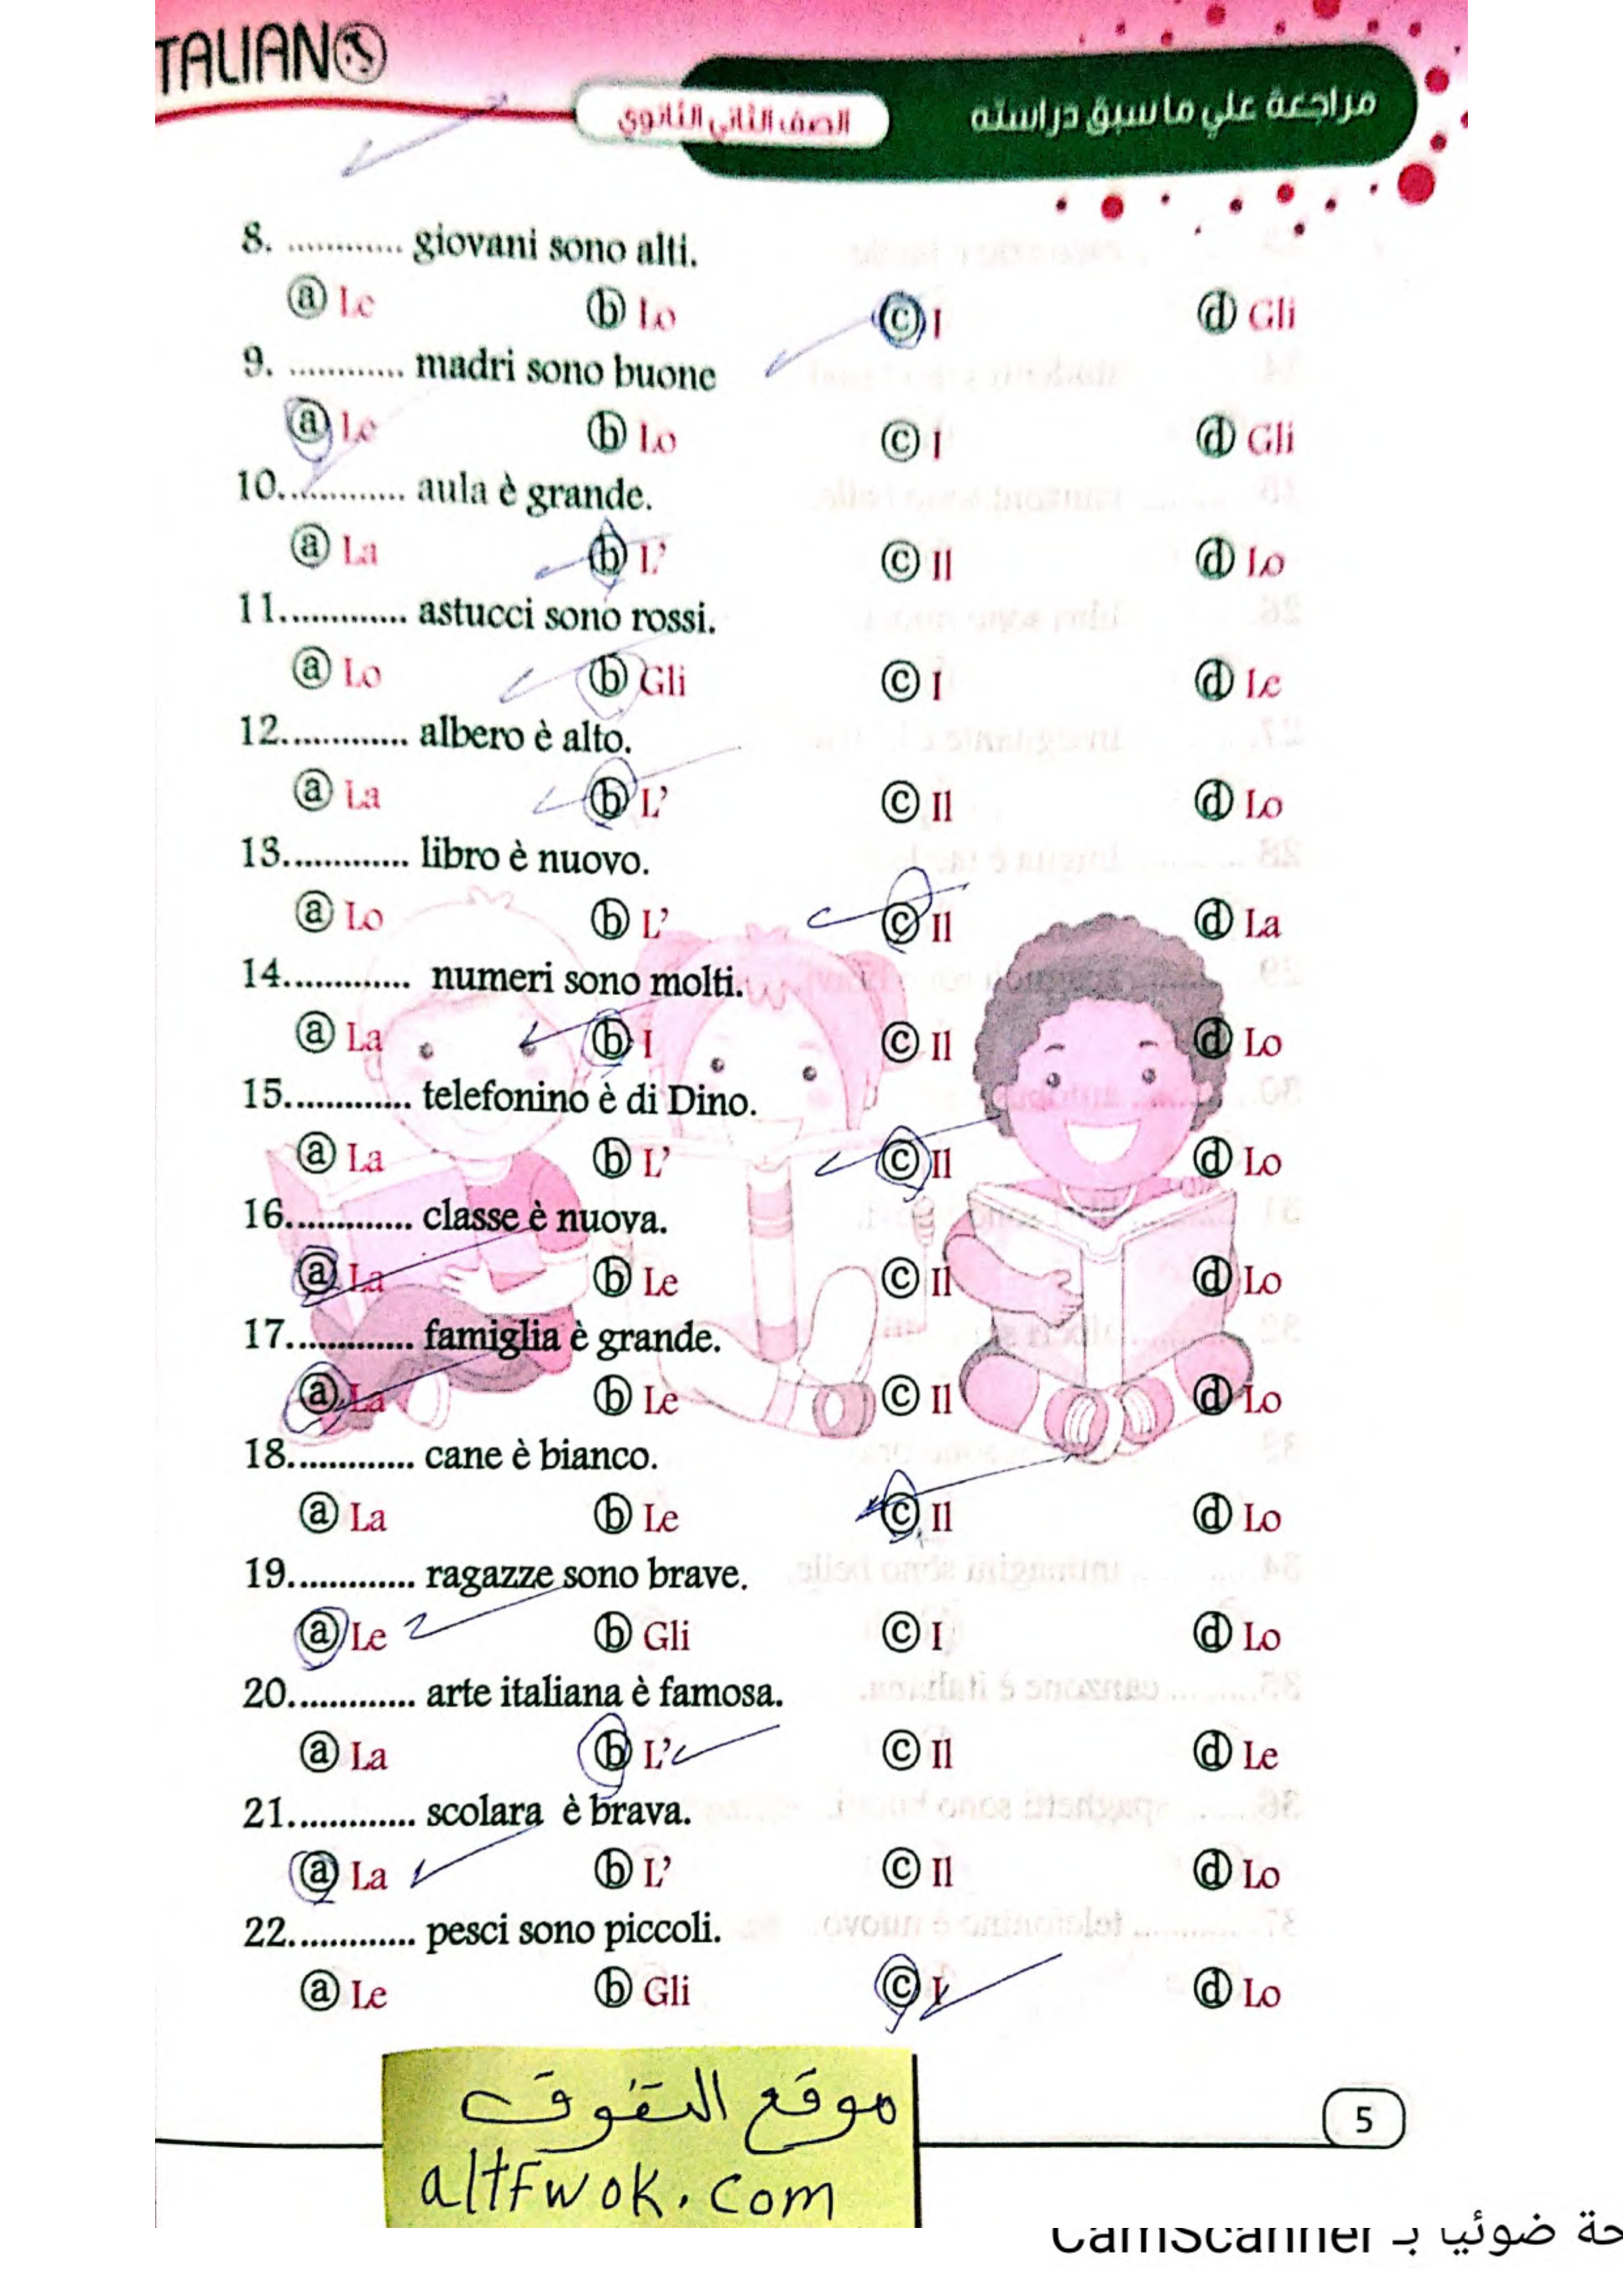 ITALIANO
مراجعة علي ما سبق دراسته
الصف الثاني الثانوي
8. ............ giovani sono alti.
ⓐ Le ⓑ Lo ⓒ I ⓓ Gli
9. ............ madri sono buone
ⓐ Le ⓑ Lo ⓒ I ⓓ Gli
10............. aula è grande.
ⓐ La ⓑ L’ ⓒ Il ⓓ Lo
11............. astucci sono rossi.
ⓐ Lo ⓑ Gli ⓒ I ⓓ Le
12............. albero è alto.
ⓐ La ⓑ L’ ⓒ Il ⓓ Lo
13............. libro è nuovo.
ⓐ Lo ⓑ L’ ⓒ Il ⓓ La
14............. numeri sono molti.
ⓐ La ⓑ I ⓒ Il ⓓ Lo
15............. telefonino è di Dino.
ⓐ La ⓑ L’ ⓒ Il ⓓ Lo
16............. classe è nuova.
ⓐ La ⓑ Le ⓒ Il ⓓ Lo
17............. famiglia è grande.
ⓐ La ⓑ Le ⓒ Il ⓓ Lo
18............. cane è bianco.
ⓐ La ⓑ Le ⓒ Il ⓓ Lo
19............. ragazze sono brave.
ⓐ Le ⓑ Gli ⓒ I ⓓ Lo
20............. arte italiana è famosa.
ⓐ La ⓑ L’ ⓒ Il ⓓ Le
21............. scolara è brava.
ⓐ La ⓑ L’ ⓒ Il ⓓ Lo
22............. pesci sono piccoli.
ⓐ Le ⓑ Gli ⓒ I ⓓ Lo
موقع التفوق
altFwok.com
5
حة ضوئيا بـ CamScanner